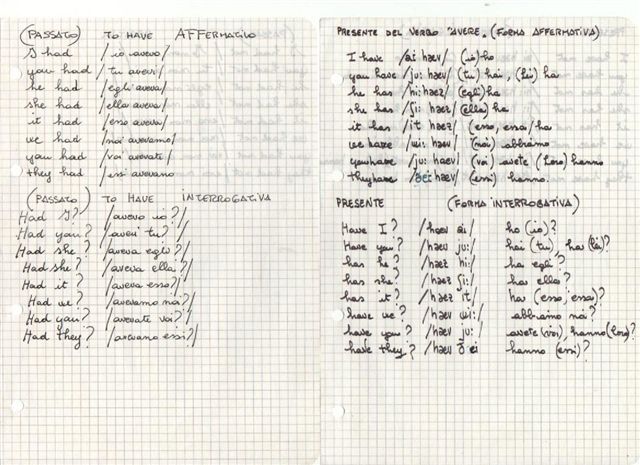 (PASSATO) TO HAVE AFFERMATIVO
I had /io avevo/
you had /tu avevi/
he had /egli aveva/
she had /ella aveva/
it had /esso aveva/
we had /noi avevamo/
you had /voi avevate/
they had /essi avevano
(PASSATO) TO HAVE INTERROGATIVA
Had I? /avevo io?/
Had you? /avevi tu?/
Had she? /aveva egli?/
Had she? /aveva ella?/
Had it? /aveva esso?/
Had we? /avevamo noi?/
Had you? /avevate voi?/
Had they? /avevano essi?/
PRESENTE DEL VERBO "AVERE" (FORMA AFFERMATIVA)
I have /ai hæv/ (io) ho
you have /ju: hæv/ (tu) hai, (lei) ha
he has /hi: hæz/ (egli) ha
she has /ʃi: hæz/ (ella) ha
it has /it hæz/ (esso, essa) ha
we have /wi: hæv/ (noi) abbiamo
you have /ju: hæv/ (voi) avete (loro) hanno
they have /ðei hæv/ (essi) hanno.
PRESENTE (FORMA INTERROGATIVA)
Have I? /hæv ai/ ho (io)?
Have you? /hæv ju:/ hai (tu), ha (lei)?
has he? /hæz hi:/ ha egli?
has she? /hæz ʃi:/ ha ella?
has it? /hæz it/ ha (esso, essa)?
have we? /hæv wi:/ abbiamo noi?
have you? /hæv ju:/ avete (voi), hanno (loro)?
have they? /hæv ðei hanno (essi)?